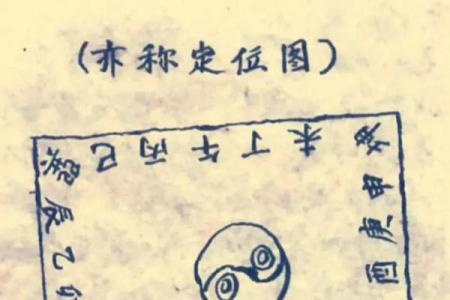 (亦称定位图)
巽巳丙午丁未
辰乙
申庚酉